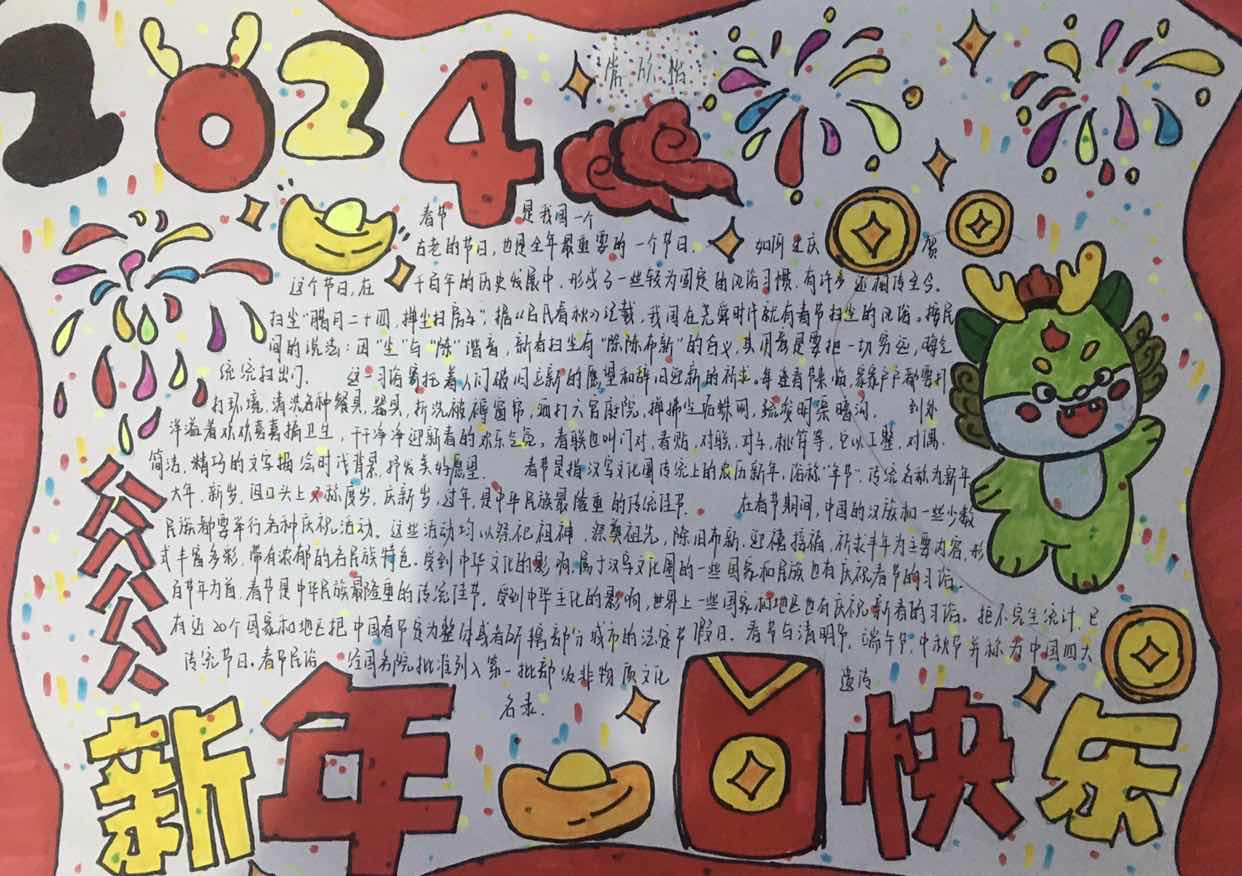 2024
春节 是我国一个
古老的节日,也是全年最重要的一个节日. 如何庆 贺
这个节日,在 千百年的历史发展中,形成了一些较为固定的风俗习惯,有许多还相传至今。
扫尘"腊月二十四,掸尘扫房子",据《吕氏春秋》记载,我国在尧舜时代就有春节扫尘的风俗。按民
间的说法:因"尘"与"陈"谐音,新春扫尘有"除陈布新"的含义,其用意是要把一切穷运,晦气
统统扫出门. 这一习俗寄托着人们破旧立新的愿望和辞旧迎新的祈求.每逢春节来临,家家户户都要打
扫环境,清洗各种餐具,器具,拆洗被褥窗帘,洒扫六闾庭院,掸拂尘垢蛛网,疏浚明渠暗沟. 到处
洋溢着欢欢喜喜搞卫生,干干净净迎新春的欢乐气氛。春联也叫门对,春贴,对联,对子,桃符等,它以工整,对偶.
简洁.精巧的文字描绘时代背景,抒发美好愿望. 春节是指汉字文化圈传统上的农历新年,俗称"年节",传统名称为新年
大年,新岁,但口头上又称度岁,庆新岁,过年,是中华民族最隆重的传统佳节. 在春节期间,中国的汉族和一些少数
民族都要举行各种庆祝活动。这些活动均以祭祀祖神.祭奠祖先,除旧布新.迎禧接福,祈求丰年为主要内容,形
式丰富多彩,带有浓郁的各民族特色。受到中华文化的影响,属于汉字文化圈的一些国家和民族也有庆祝春节的习俗。
百节年为首,春节是中华民族最隆重的传统佳节.受到中华文化的影响,世界上一些国家和地区也有庆祝新春的习俗。据不完全统计,已
有近20个国家和地区把中国春节定为整体或者所辖部分城市的法定节假日。春节与清明节,端午节,中秋节并称为中国四大
传统节日.春节民俗 经国务院批准列入第一批部级非物质文化 遗传
名录.
新年快乐